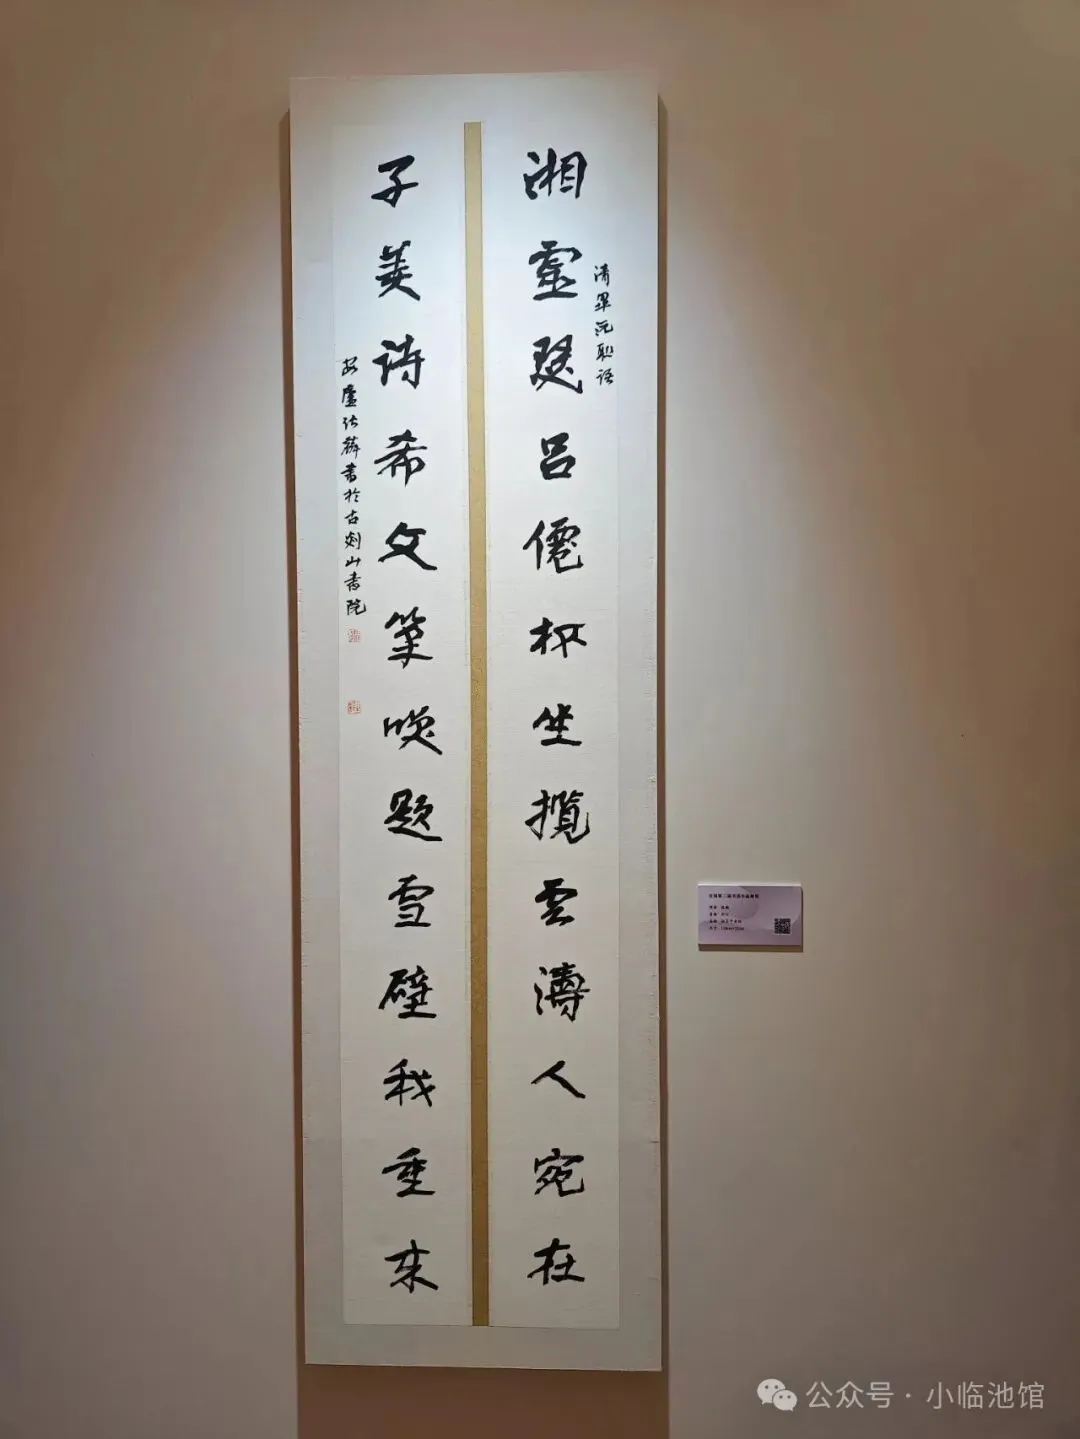 湘靈瑟呂僊杯坐攬雲濤人宛在
清畢沅聯語
子美詩希文筆喚題雪壁我重來
書於古劍山書院
公众号 · 小临池馆